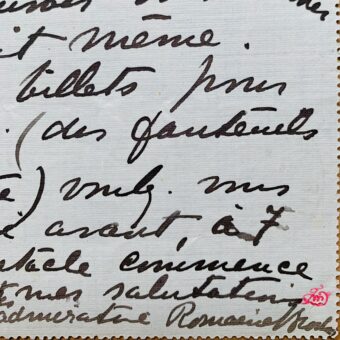 it même.
billets pour
. (des fauteuils
) vous
avant, à 7
tacle commence
mes salutations
admirative Romaine Brooks